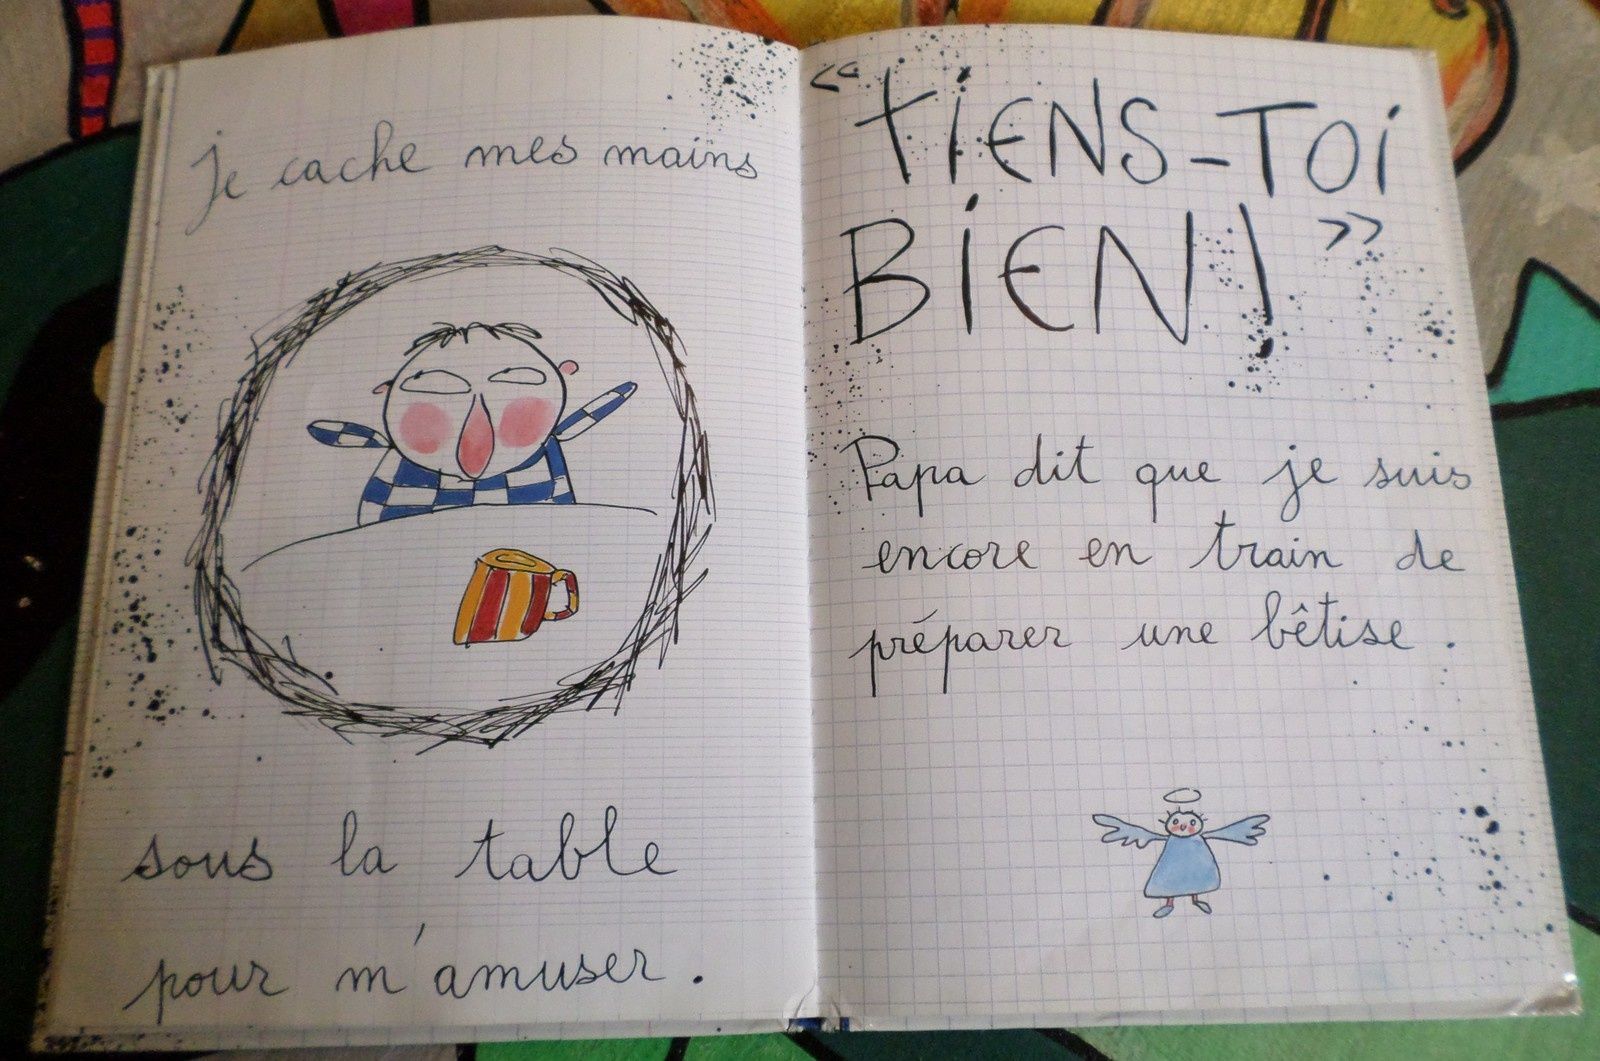 Je cache mes mains
sous la table
pour m'amuser.
« TIENS-TOI
BIEN! »
Papa dit que je suis
encore en train de
préparer une bêtise.